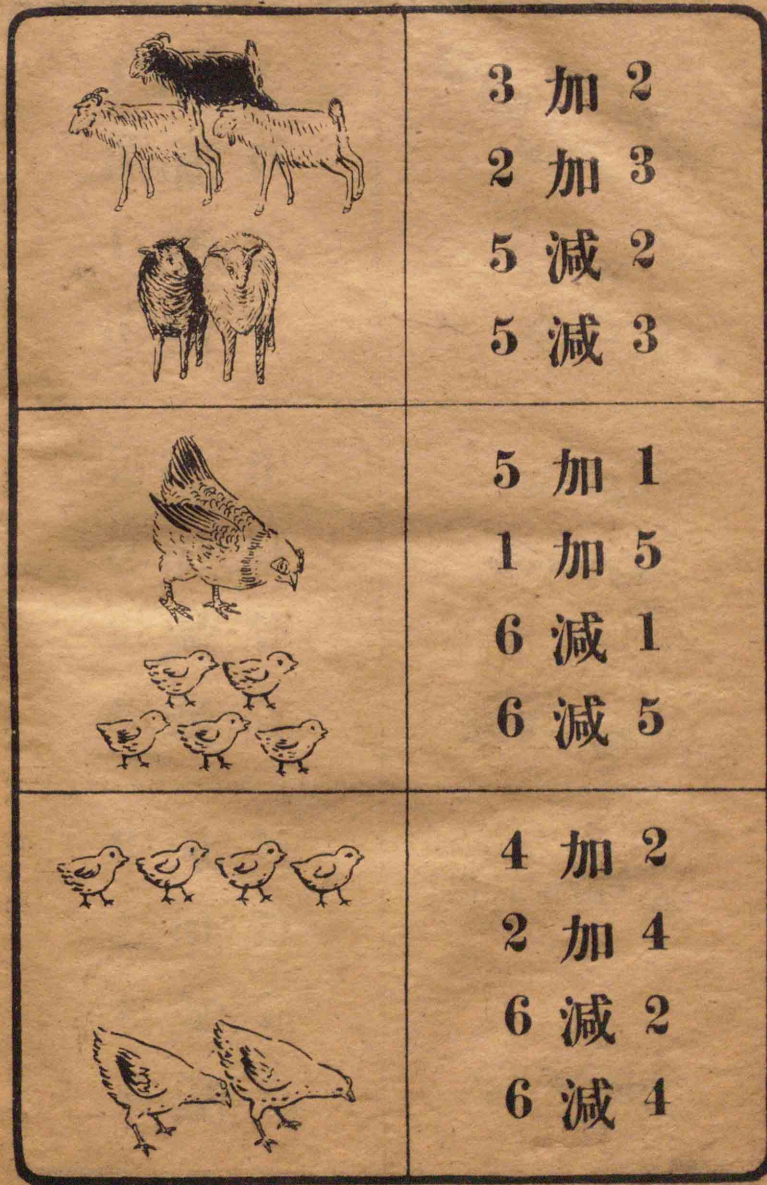 3 加 2
2 加 3
5 減 2
5 減 3
5 加 1
1 加 5
6 減 1
6 減 5
4 加 2
2 加 4
6 減 2
6 減 4